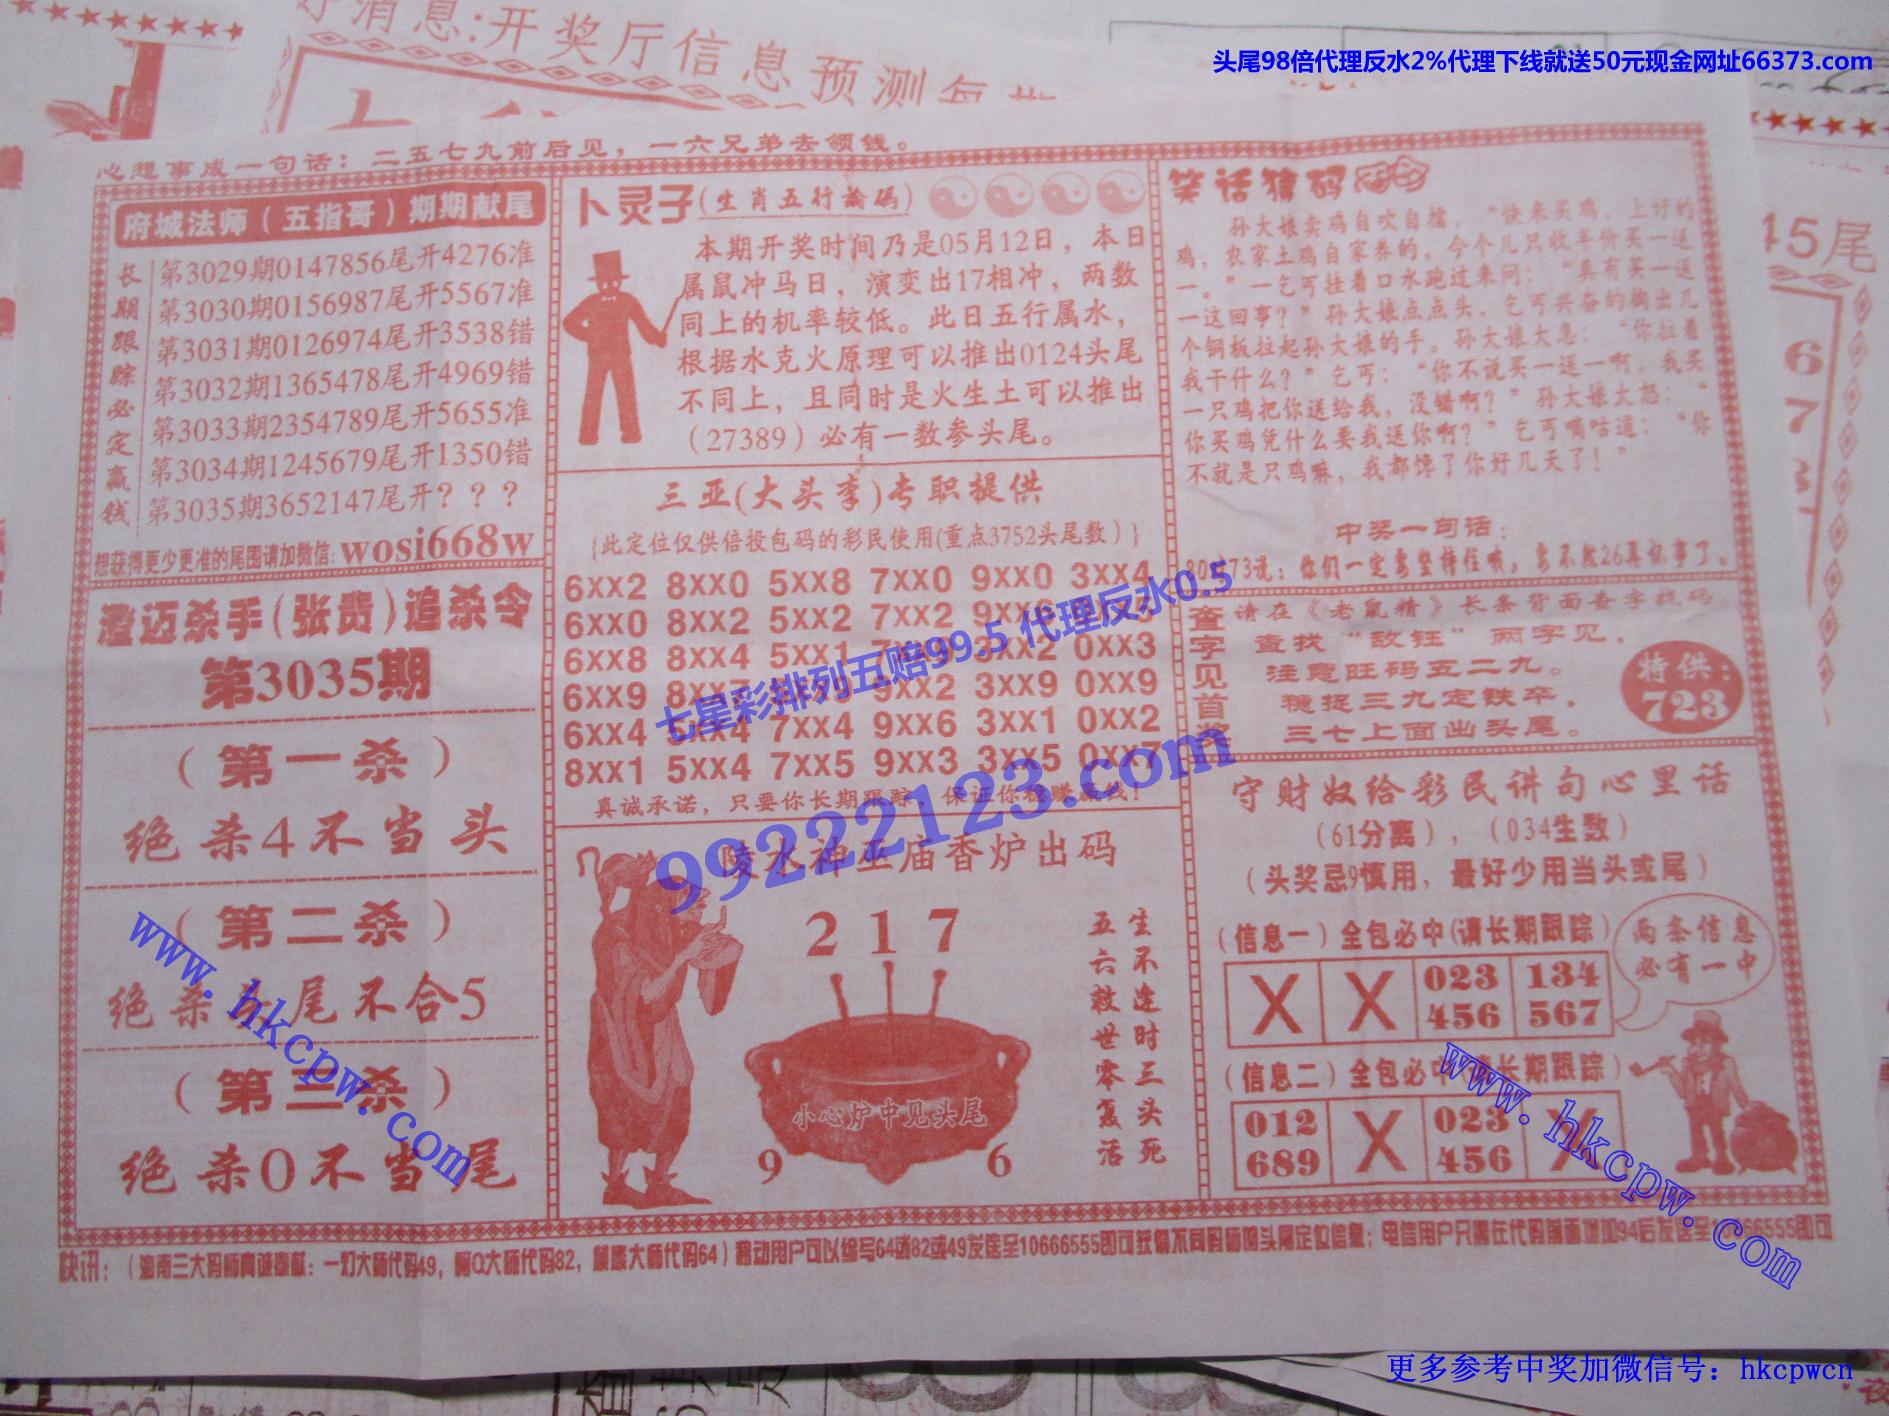 好消息:开奖厅信息预测每期
头尾98倍代理反水2%代理下线就送50元现金网址66373.com
心想事成一句话：二五七九前后见，一六兄弟去领钱。
府城法师（五指哥）期期献尾
长期跟踪必定赢钱
第3029期0147856尾开4276准
第3030期0156987尾开5567准
第3031期0126974尾开3538错
第3032期1365478尾开4969错
第3033期2354789尾开5655准
第3034期1245679尾开1350错
第3035期3652147尾开？？？
想获得更少更准的尾围请加微信: wosi668w
澄迈杀手(张贵)追杀令
第3035期
（第一杀）
绝杀4不当头
（第二杀）
绝杀头尾不合5
（第三杀）
绝杀0不当尾
卜灵子(生肖五行論碼)
本期开奖时间乃是05月12日，本日
属鼠冲马日，演变出17相冲，两数
同上的机率较低。此日五行属水，
根据水克火原理可以推出0124头尾
不同上，且同时是火生土可以推出
（27389）必有一数参头尾。
三亚(大头李)专职提供
{此定位仅供倍投包码的彩民使用(重点3752头尾数）}
6XX2 8XX0 5XX8 7XX0 9XX0 3XX4
6XX0 8XX2 5XX2 7XX2 9XX6
6XX8 8XX4 5XX1 0XX3
6XX9 9XX2 3XX9 0XX9
6XX4 5XX4 7XX4 9XX6 3XX1 0XX2
8XX1 5XX4 7XX5 9XX3 3XX5 0XX7
真诚承诺，只要你长期跟踪，保证你稳赚赢钱！
陵水神巫庙香炉出码
217
小心炉中见头尾
9 6
生不逢时三头死
五六救世零复活
笑话猜码
孙大娘卖鸡自吹自擂，“快来买鸡，上好的
鸡，农家土鸡自家养的，今个儿只收半价买一送
一。”一乞丐挂着口水跑过来问：“真有买一送
一这回事？”孙大娘点点头，乞丐兴奋的掏出几
个铜板拉起孙大娘的手。孙大娘大急：“你拉着
我干什么？”乞丐：“你不说买一送一啊，我买
一只鸡把你送给我，没错啊？”孙大娘大怒：“
你买鸡凭什么要我送你啊？”乞丐嘀咕道：“你
不就是只鸡嘛，我都馋了你好几天了！”
中奖一句话：
73说：你们一定要坚持住哦，要不然26真坏事了。
查字见首奖
请在《老鼠精》长条背面查字找码
查找“敌钰”两字见，
注意旺码五二九。
稳捉三九定铁卒，
三七上面出头尾。
特供：
723
守财奴给彩民讲句心里话
（61分离），（034生数）
（头奖忌9慎用，最好少用当头或尾）
（信息一）全包必中(请长期跟踪）
X X 023 134
456 567
两条信息
必有一中
（信息二）全包必中(请长期跟踪）
012 X 023 X
689 456
快讯：（海南三大码师真诚奉献：一灯大师代码49，阿Q大师代码82，
大师代码64）移动用户可以编写64或82或49发送至10666555即可获得不同码师的头尾定位信息；电信用户只需在代码前面增加94后发送至10666555即可
七星彩排列五赔99.5 代理反水0.5
99222123.com
www.hkcpw.com
www.hkcpw.com
45尾
6
7
更多参考中奖加微信号：hkcpwcn